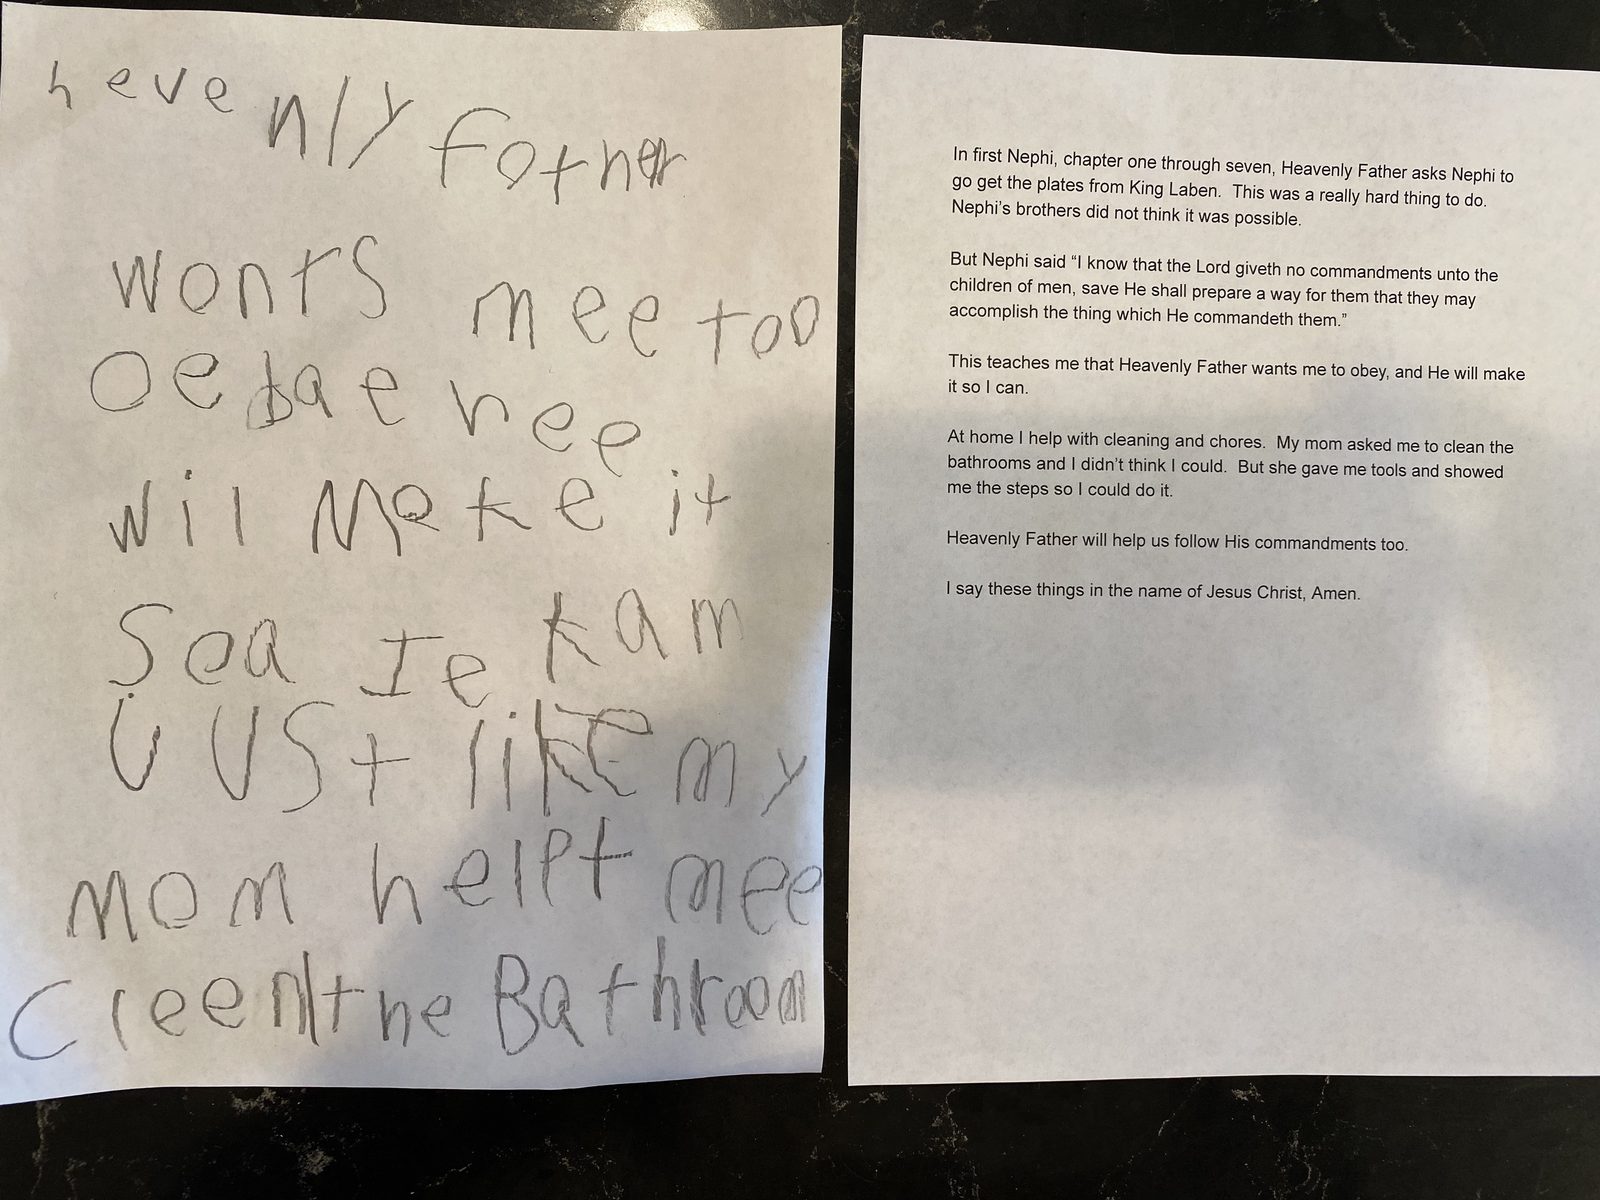 hevenly fother
wonts mee too
oebae hee
wil make it
soa Ie kam
just like my
mom helpt mee
cleen the Bathroom
In first Nephi, chapter one through seven, Heavenly Father asks Nephi to
go get the plates from King Laben.  This was a really hard thing to do.
Nephi's brothers did not think it was possible.
But Nephi said “I know that the Lord giveth no commandments unto the
children of men, save He shall prepare a way for them that they may
accomplish the thing which He commandeth them.”
This teaches me that Heavenly Father wants me to obey, and He will make
it so I can.
At home I help with cleaning and chores.  My mom asked me to clean the
bathrooms and I didn't think I could.  But she gave me tools and showed
me the steps so I could do it.
Heavenly Father will help us follow His commandments too.
I say these things in the name of Jesus Christ, Amen.